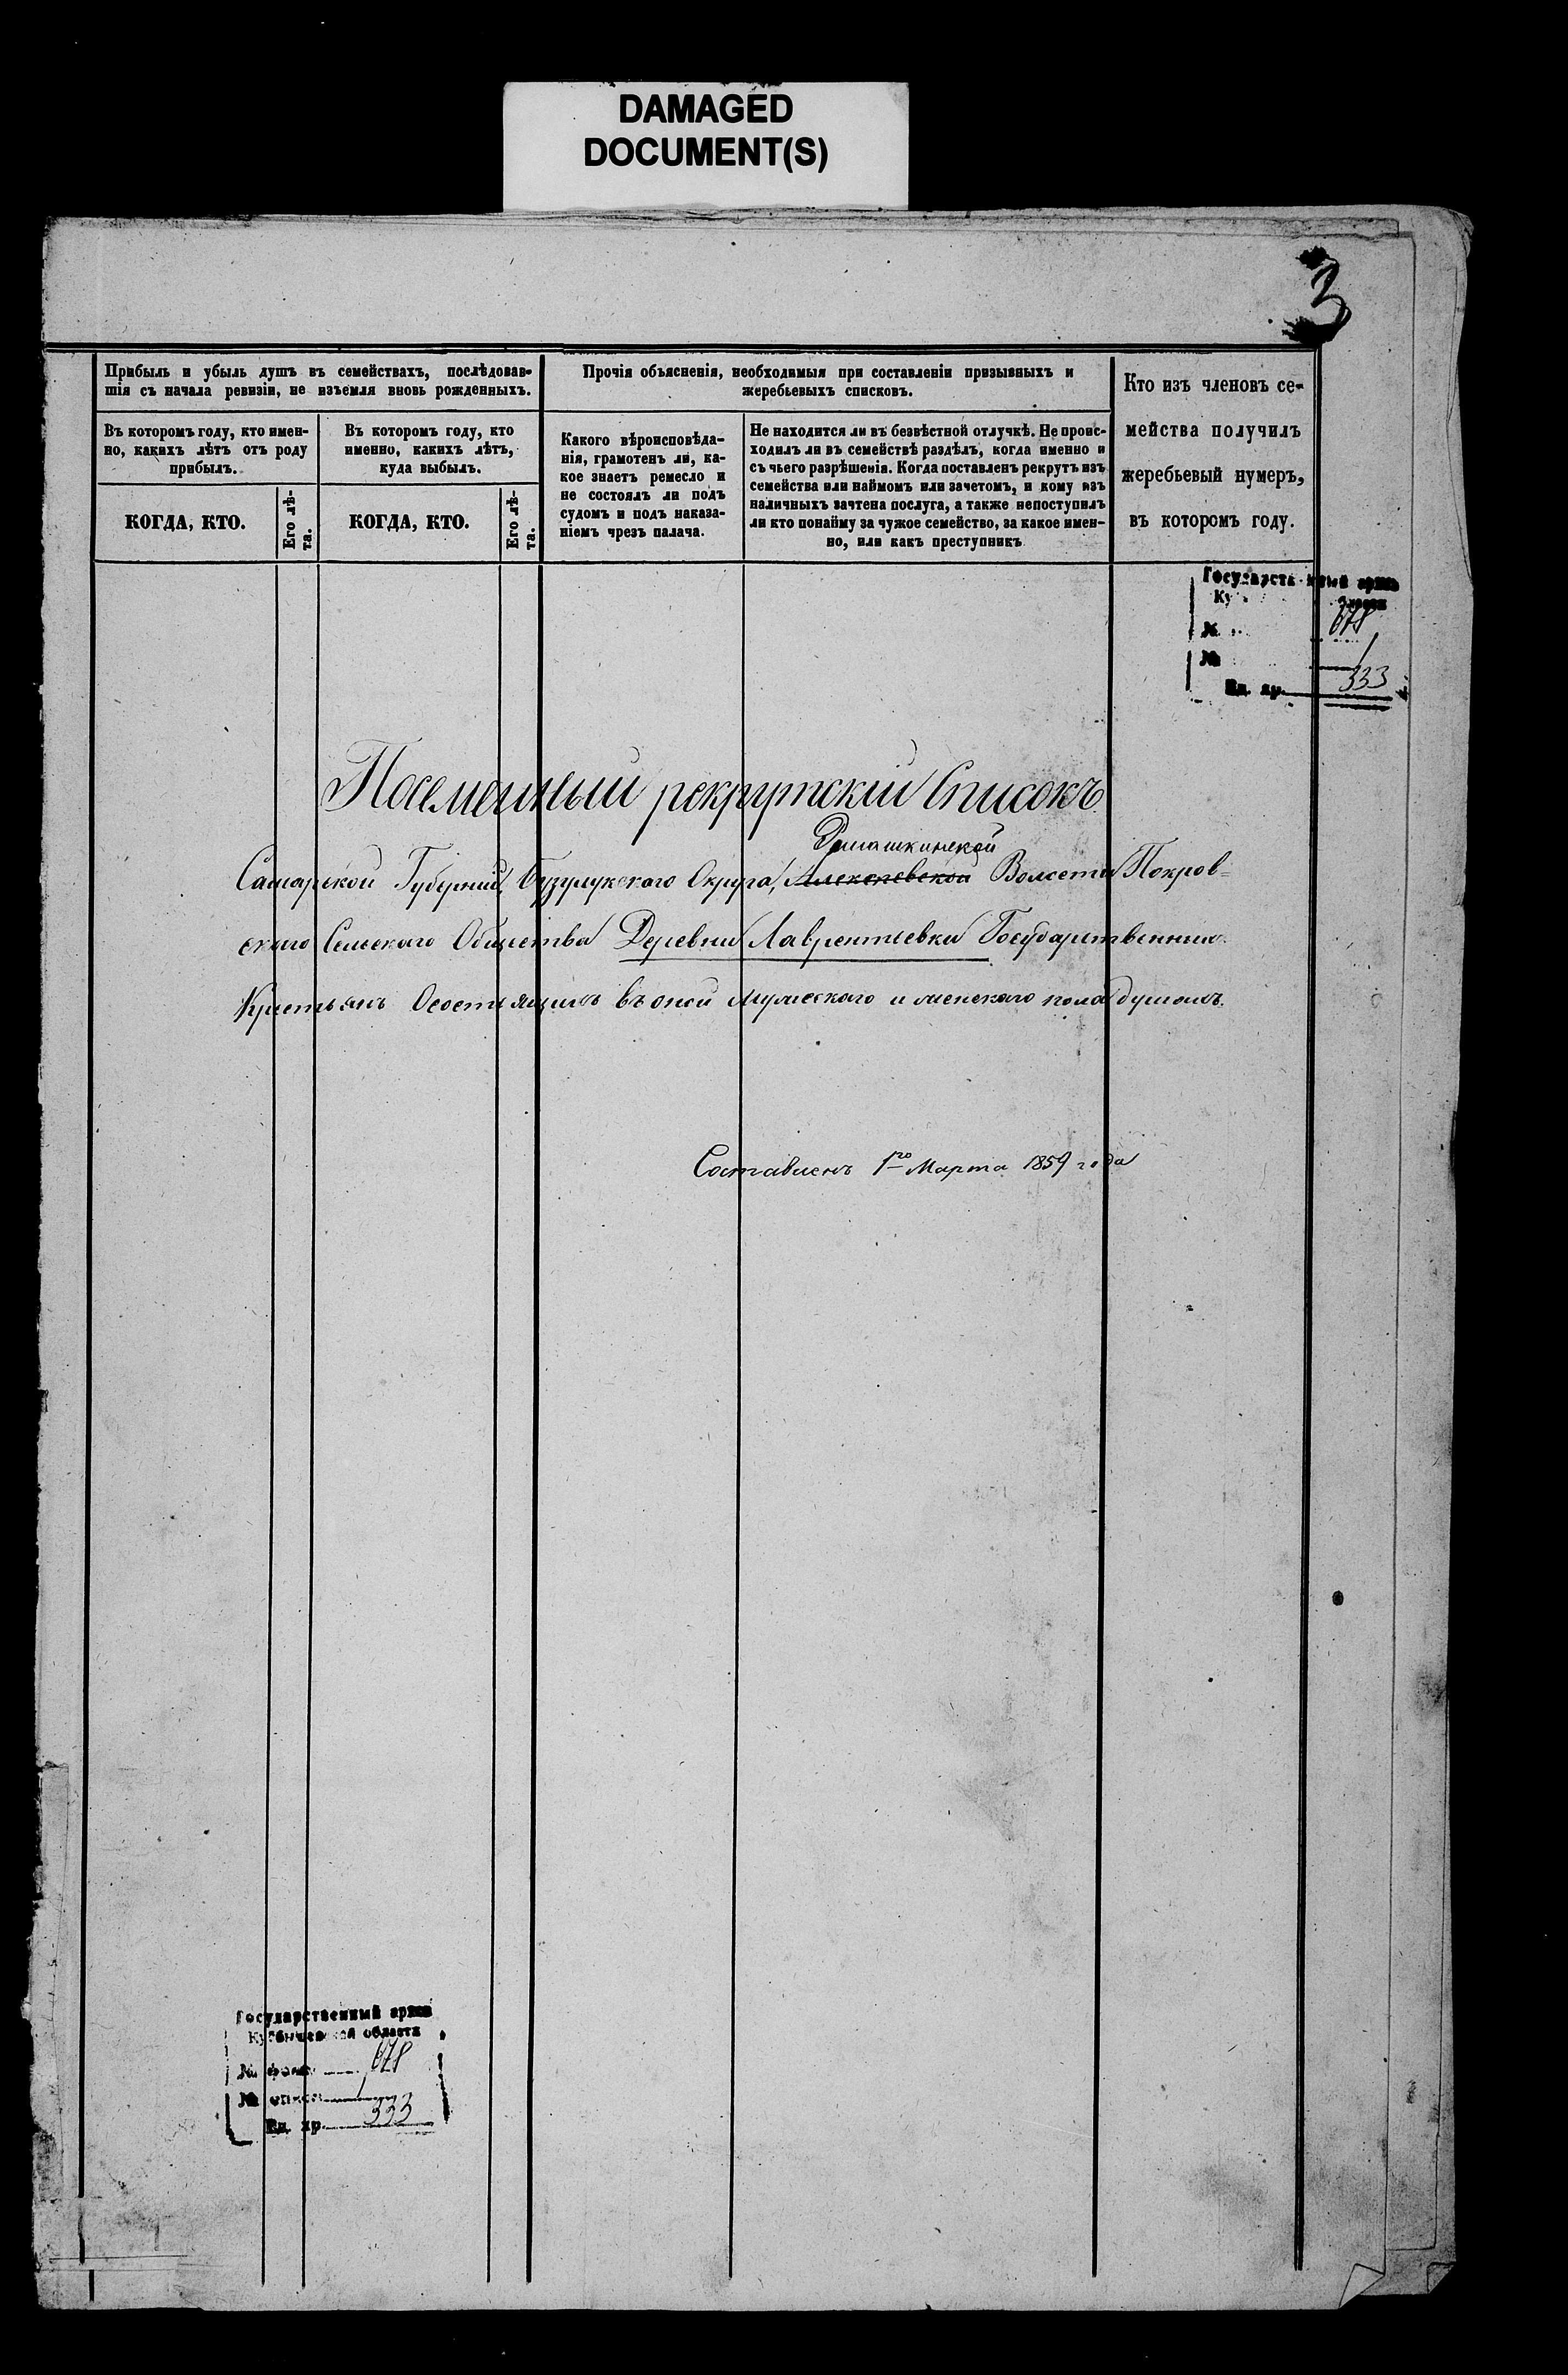 DAMAGED
DOCUMENT(S)
3
Прибыль и убыль душъ въ семействахъ, послѣдовав-
шія съ начала ревизіи, не изъемля вновь рожденныхъ.
Въ которомъ году, кто имен-
но, какихъ лѣтъ отъ роду
прибылъ.
КОГДА, КТО.
Его лѣ-
та.
Въ которомъ году, кто
именно, какихъ лѣтъ,
куда выбылъ.
КОГДА, КТО.
Его лѣ-
та.
Прочія объясненія, необходимыя при составленіи призывныхъ и
жеребьевыхъ списковъ.
Какого вѣроисповѣда-
нія, грамотенъ ли, ка-
кое знаетъ ремесло и
не состоялъ ли подъ
судомъ и подъ наказа-
ніемъ чрезъ палача.
Не находится ли въ безвѣстной отлучкѣ. Не проис-
ходилъ ли въ семействѣ раздѣлъ, когда именно и
съ чьего разрѣшенія. Когда поставленъ рекрутъ изъ
семейства или наймомъ или зачетомъ, и кому изъ
наличныхъ зачтена послуга, а также непоступилъ
ли кто понайму за чужое семейство, за какое имен-
но, или какъ преступникъ
Кто изъ членовъ се-
мейства получилъ
жеребьевый нумеръ,
въ которомъ году.
№ 678
№ 1
Ед. хр. 333
Посемейный рекрутскій Списокъ
Домашкинской
Самарской Губерніи, Бузулукского Округа, Алексеевской Волости Покров=
ского Сельскаго Общества Деревни Лаврентьевки Государственных
Крестьянъ Осостьящихъ въ оной мужескаго и женскаго пола душахъ.
Составленъ 1го Марта 1859 года
Государственный архив
Куйбышевской области
№ фонда 678
№ описи 1
Ед. хр. 333